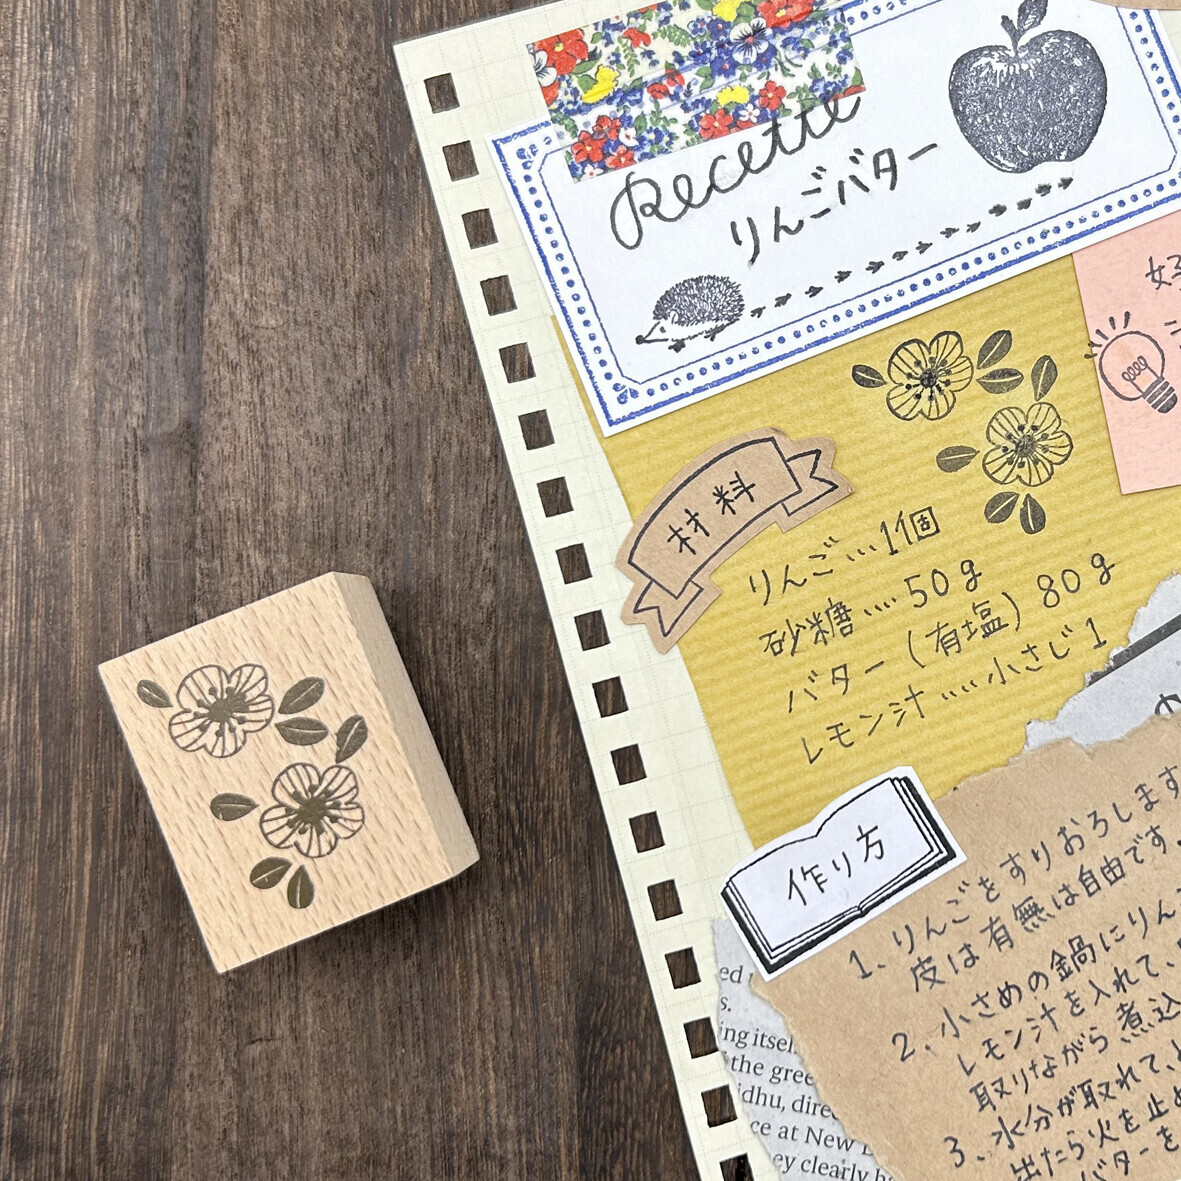 Recette
りんごバター
材料
りんご…1個
砂糖….50g
バター(有塩)80g
レモン汁….小さじ1
作り方
1、りんごをすりおろします
皮は有無は自由です。
2、小さめの鍋にりん
レモン汁を入れて、
取りながら煮込
3、水分が取れて、
出たら火を止め
バターを
ed
s.
ing itsel
the gree
idhu, direc
ce at New
ey clearly h